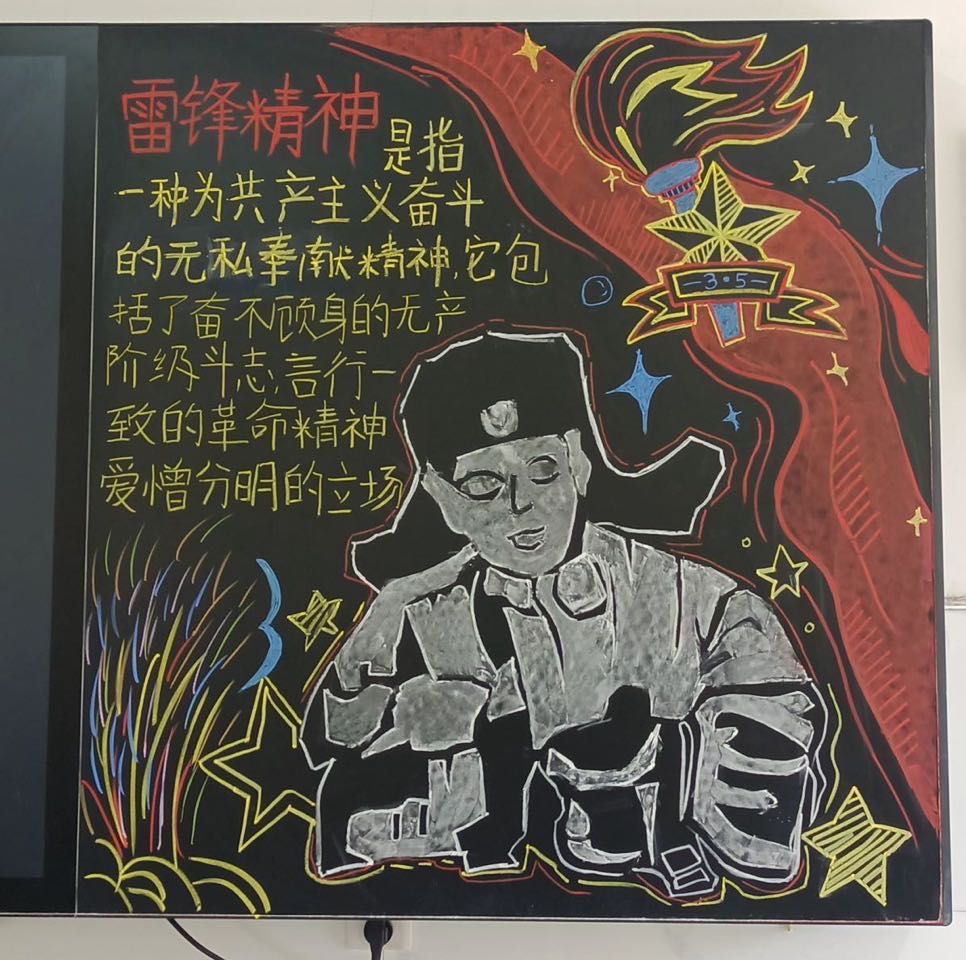 雷锋精神是指
一种为共产主义奋斗
的无私奉献精神,它包
括了奋不顾身的无产
阶级斗志,言行一
致的革命精神
爱憎分明的立场
3·5